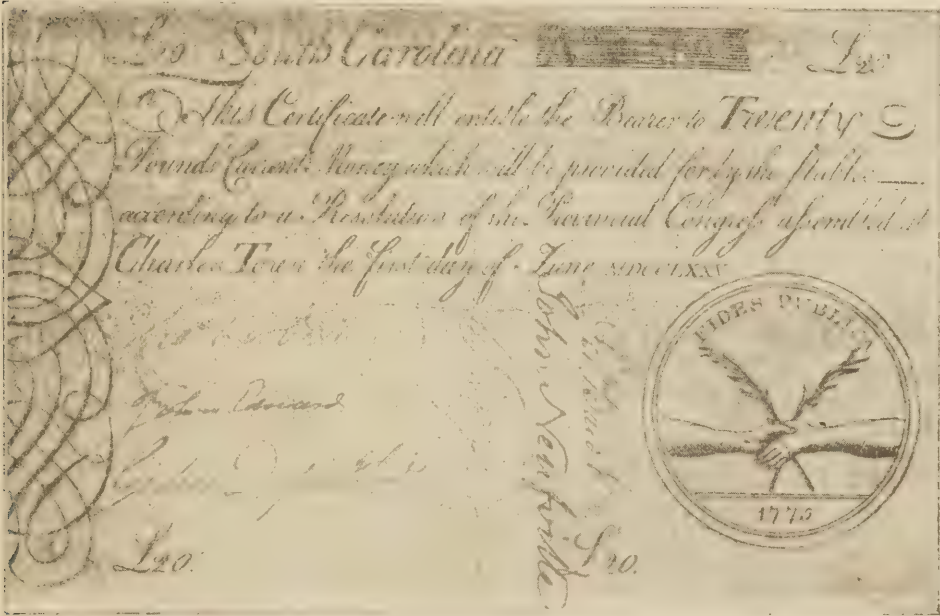 £20 South Carolina £20
This Certificate will entitle the Bearer to Twenty
Pounds Current Money which will be provided for by the Public
according to a Resolution of the Provincial Congress assembled at
Charles Town the first day of June MDCCLXXV
FIDES PUBLICA
1775
John Edwards
John Neufville
£20.
£20.